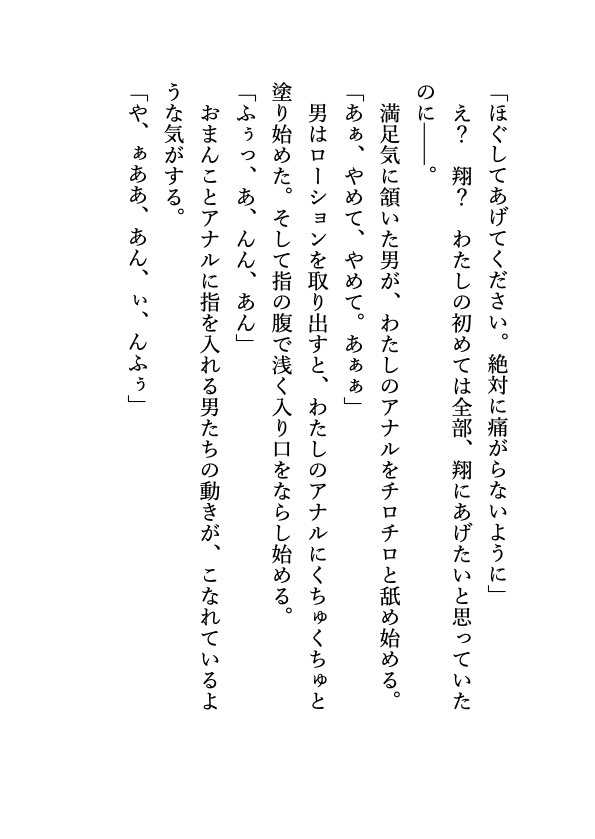 「ほぐしてあげてください。絶対に痛がらないように」
え？　翔？　わたしの初めては全部、翔にあげたいと思っていた
のに――。
満足気に頷いた男が、わたしのアナルをチロチロと舐め始める。
「あぁ、やめて、やめて。あぁぁ」
男はローションを取り出すと、わたしのアナルにくちゅくちゅと
塗り始めた。そして指の腹で浅く入り口をならし始める。
「ふぅっ、あ、んん、あん」
おまんことアナルに指を入れる男たちの動きが、こなれているよ
うな気がする。
「や、ぁああ、あん、ぃ、んふぅ」